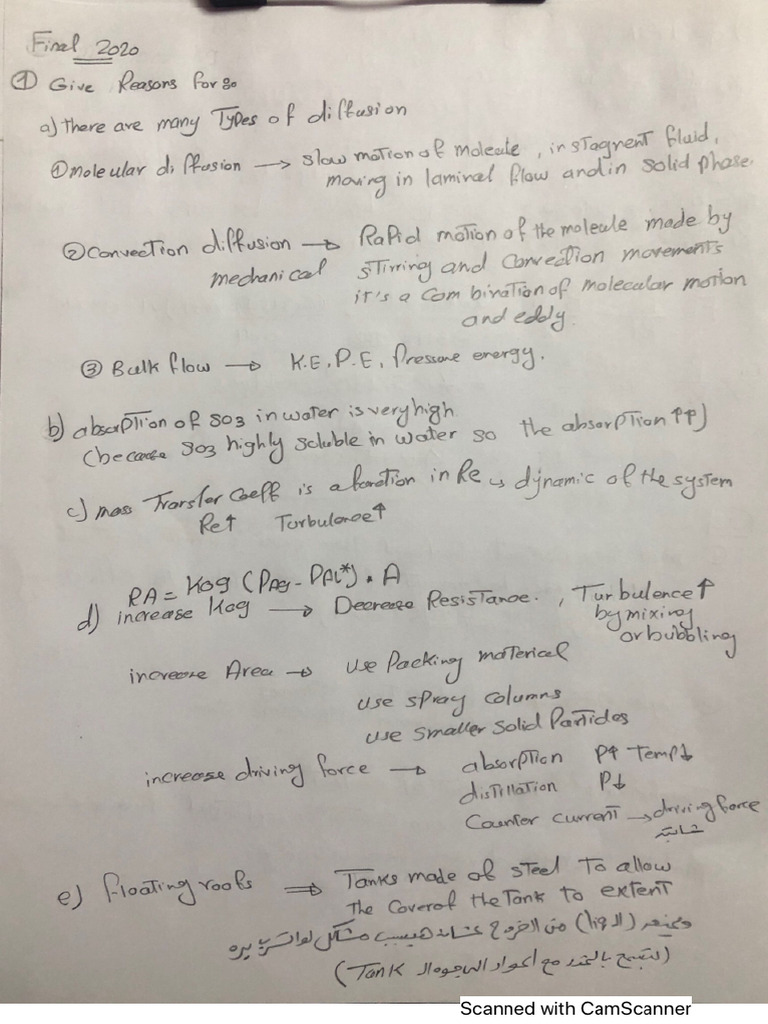 Final 2020
① Give Reasons for:
a) there are many Types of diffusion
① molecular diffusion → slow motion of molecule, in stagnent fluid,
moving in laminal flow and in solid phase.
② Convection diffusion → Rapid motion of the molecule made by
mechanical stirring and Convection movements
it's a Combination of molecular motion
and eddy.
③ Bulk flow → K.E, P.E, Pressure energy.
b) absorption of SO3 in water is very high
(because SO3 highly soluble in water so the absorption ↑↑)
c) mass Transfer Coeff is a function in Re dynamic of the system
Re↑ Turbulance↑
RA = Kog (PAg - PAL*). A
d) increase Kog → Decrease Resistance. , Turbulence↑
by mixing
or bubbling
increase Area → use Packing material
use spray columns
use smaller solid Particles
increase driving force → absorption P↑ Temp↓
distillation P↓
Counter current → driving force
ثابتة
e) floating roofs ⇒ Tanks made of steel To allow
The Cover of the Tank to extent
(الـ liq) من الخروج عشان هيسبب مشاكل
(Tank
Scanned with CamScanner